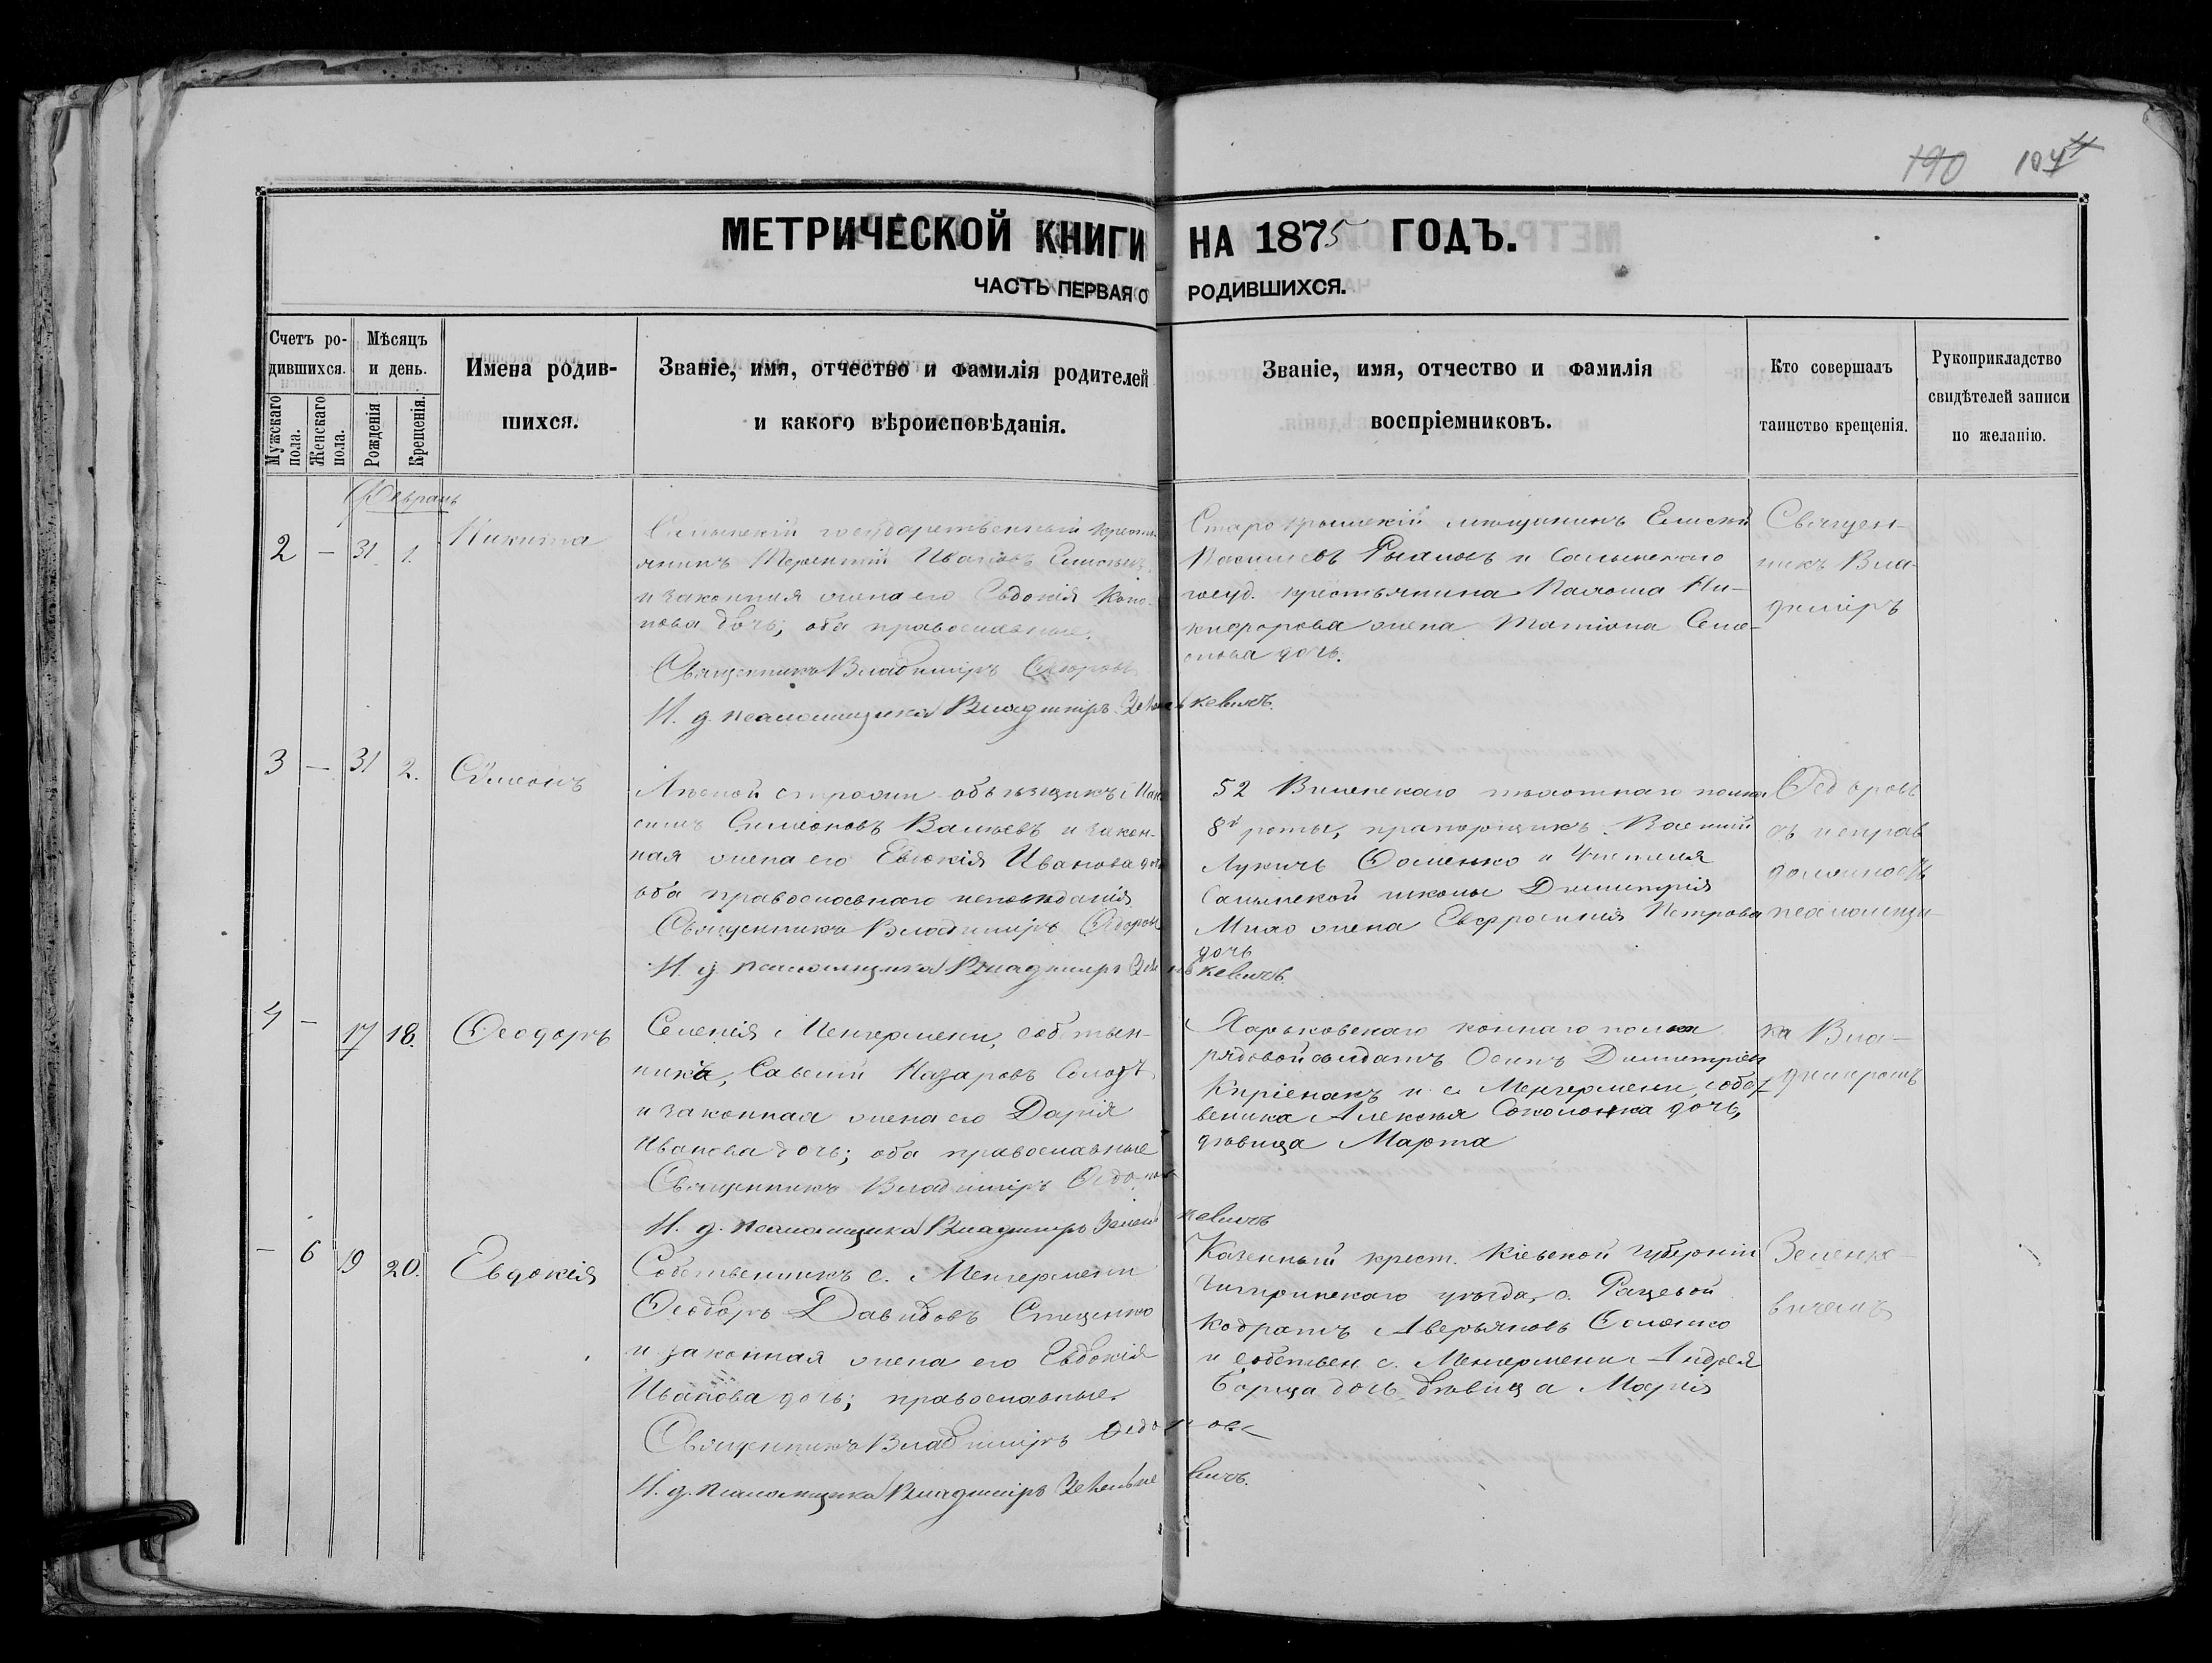 190 104
МЕТРИЧЕСКОЙ КНИГИ НА 1875 ГОДЪ.
ЧАСТЬ ПЕРВАЯ О РОДИВШИХСЯ.
Счетъ родившихся.
Мужскаго пола.
Женскаго пола.
Мѣсяцъ и день.
Рожденія
Крещенія.
Имена родив-
шихся.
Званіе, имя, отчество и фамилія родителей
и какого вѣроисповѣданія.
Званіе, имя, отчество и фамилія
воспріемниковъ.
Кто совершалъ
таинство крещенія.
Рукоприкладство
свидѣтелей записи
по желанію.
Февраль
2 — 31 1. Никита
государственный крестья
янинъ Терентій Ивановъ
и законная жена его Евдокія Коно-
нова дочь; оба православные.
Священникъ Владиміръ Ѳедоровъ
И. д. псаломщика Владиміръ Зеленькевичъ.
Старокрымскій мещанинъ Елисей
Василіевъ и Салынскаго
госуд. крестьянина Ни-
кифорова жена Татіана Семе-
онова дочь.
Священ-
никъ Вла-
диміръ
3 — 31 2. Сѵмеонъ
Лѣсной стражи объѣздчикъ Мак
симъ Симеоновъ Вальевъ и закон-
ная жена его Евдокія Иванова дочь
оба православнаго исповѣданія
Священникъ Владиміръ Ѳедоровъ
И. д. псаломщика Владиміръ Зеленькевичъ.
52 Виленскаго пѣхотнаго полка
8й роты, прапорщикъ Василій
Лукичъ Ѳоменко и Учителя
Салынской школы Димитрія
Мило жена Евфросинія Петрова
дочь
Ѳедоровъ
съ исправ
должность
псаломщи-
4 — 17 18. Ѳеодоръ
Селенія Менгермени, соб­ствен-
ника, Савелій Назаровъ
и законная жена его Дарія
Иванова дочь; оба православные
Священникъ Владиміръ Ѳедоровъ
И. д. псаломщика Владиміръ Зеленькевичъ
Харьковскаго коннаго полка
рядовой солдатъ Осипъ Димитріевъ
Киріенакъ и с. Менгермени, собст-
веника Алексѣя Соколенка дочь,
дѣвица Марта
ка Вла-
диміромъ
— 6 19 20. Евдокія
Собственникъ с. Менгермени
Ѳеодоръ Давидовъ Стеценко
и законная жена его Евдокія
Иванова дочь; православные.
Священникъ Владиміръ Ѳедоровъ
И. д. псаломщика Владиміръ Зеленькевичъ.
Казенный крест. Кіевской губерніи
Чигринскаго уѣзда, с. Рацевой
Кодратъ Аверьяновъ
и собствен с. Менгермени Андрея
Борща дочь дѣвица Марія
Зеленке
вичемъ